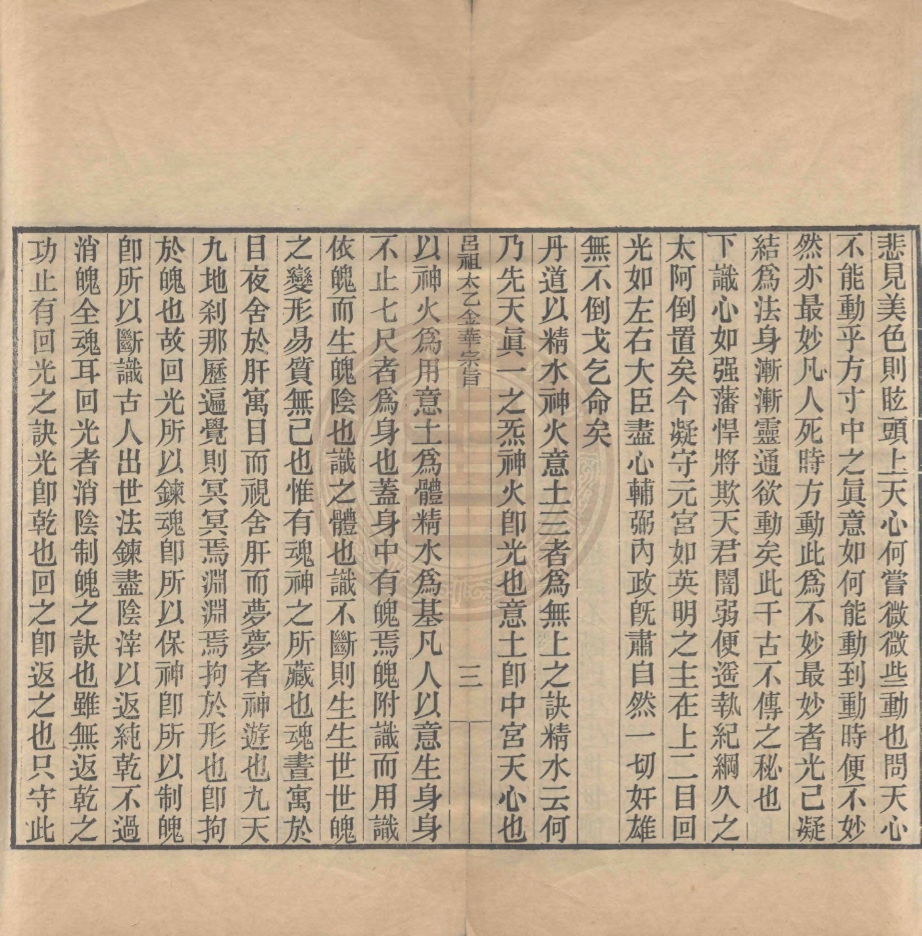 悲見美色則眩頭上天心何嘗微微些動也問天心
不能動乎方寸中之眞意如何能動到動時便不妙
然亦最妙凡人死時方動此爲不妙最妙者光已凝
結爲法身漸漸靈通欲動矣此千古不傳之秘也
下識心如强藩悍將欺天君闇弱便遥執紀綱久之
太阿倒置矣今凝守元宮如英明之主在上二目回
光如左右大臣盡心輔弼內政旣肅自然一切奸雄
無不倒戈乞命矣
丹道以精水神火意土三者爲無上之訣精水云何
乃先天眞一之炁神火卽光也意土卽中宮天心也
呂祖太乙金華宗旨
三
以神火爲用意土爲體精水爲基凡人以意生身身
不止七尺者爲身也蓋身中有魄焉魄附識而用識
依魄而生魄陰也識之體也識不斷則生生世世魄
之變形易質無已也惟有魂神之所藏也魂晝寓於
目夜舍於肝寓目而視舍肝而夢夢者神遊也九天
九地刹那歷遍覺則冥冥焉淵淵焉拘於形也卽拘
於魄也故回光所以鍊魂卽所以保神卽所以制魄
卽所以斷識古人出世法鍊盡陰滓以返純乾不過
消魄全魂耳回光者消陰制魄之訣也雖無返乾之
功止有回光之訣光卽乾也回之卽返之也只守此